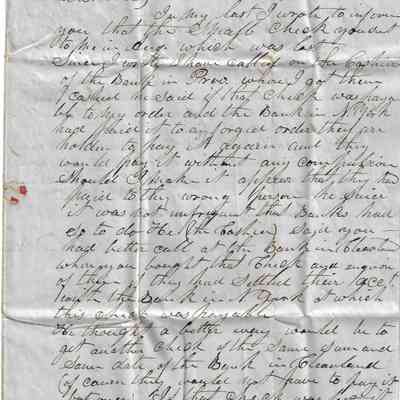 In my last I wrote to inform
you that the $ Check you sent
to me in Augt which was lost
Since I wrote I have called on the Cashier
of the Bank in Prov. where I got them
cashed he said if that Check was paya
ble to my order and the Bank in N. York
had paid it to an forged order they are
holden to pay it again and they
would pay it without any compulsion
Should I make it appear that they had
paid to the wrong person he said
it was not infrequent that Banks had
so to do He (the Cashier) said you
had better call at the Bank in Cleavland
where you bought that Check and enquire
of them if they had Settled their acct
with the Bank in N York at which
this check was payable
He thought a better way would be to
get another check of the same sum and
same date of the Bank in Cleaveland
(of course they would not have to pay it
but once) if that check was lost it